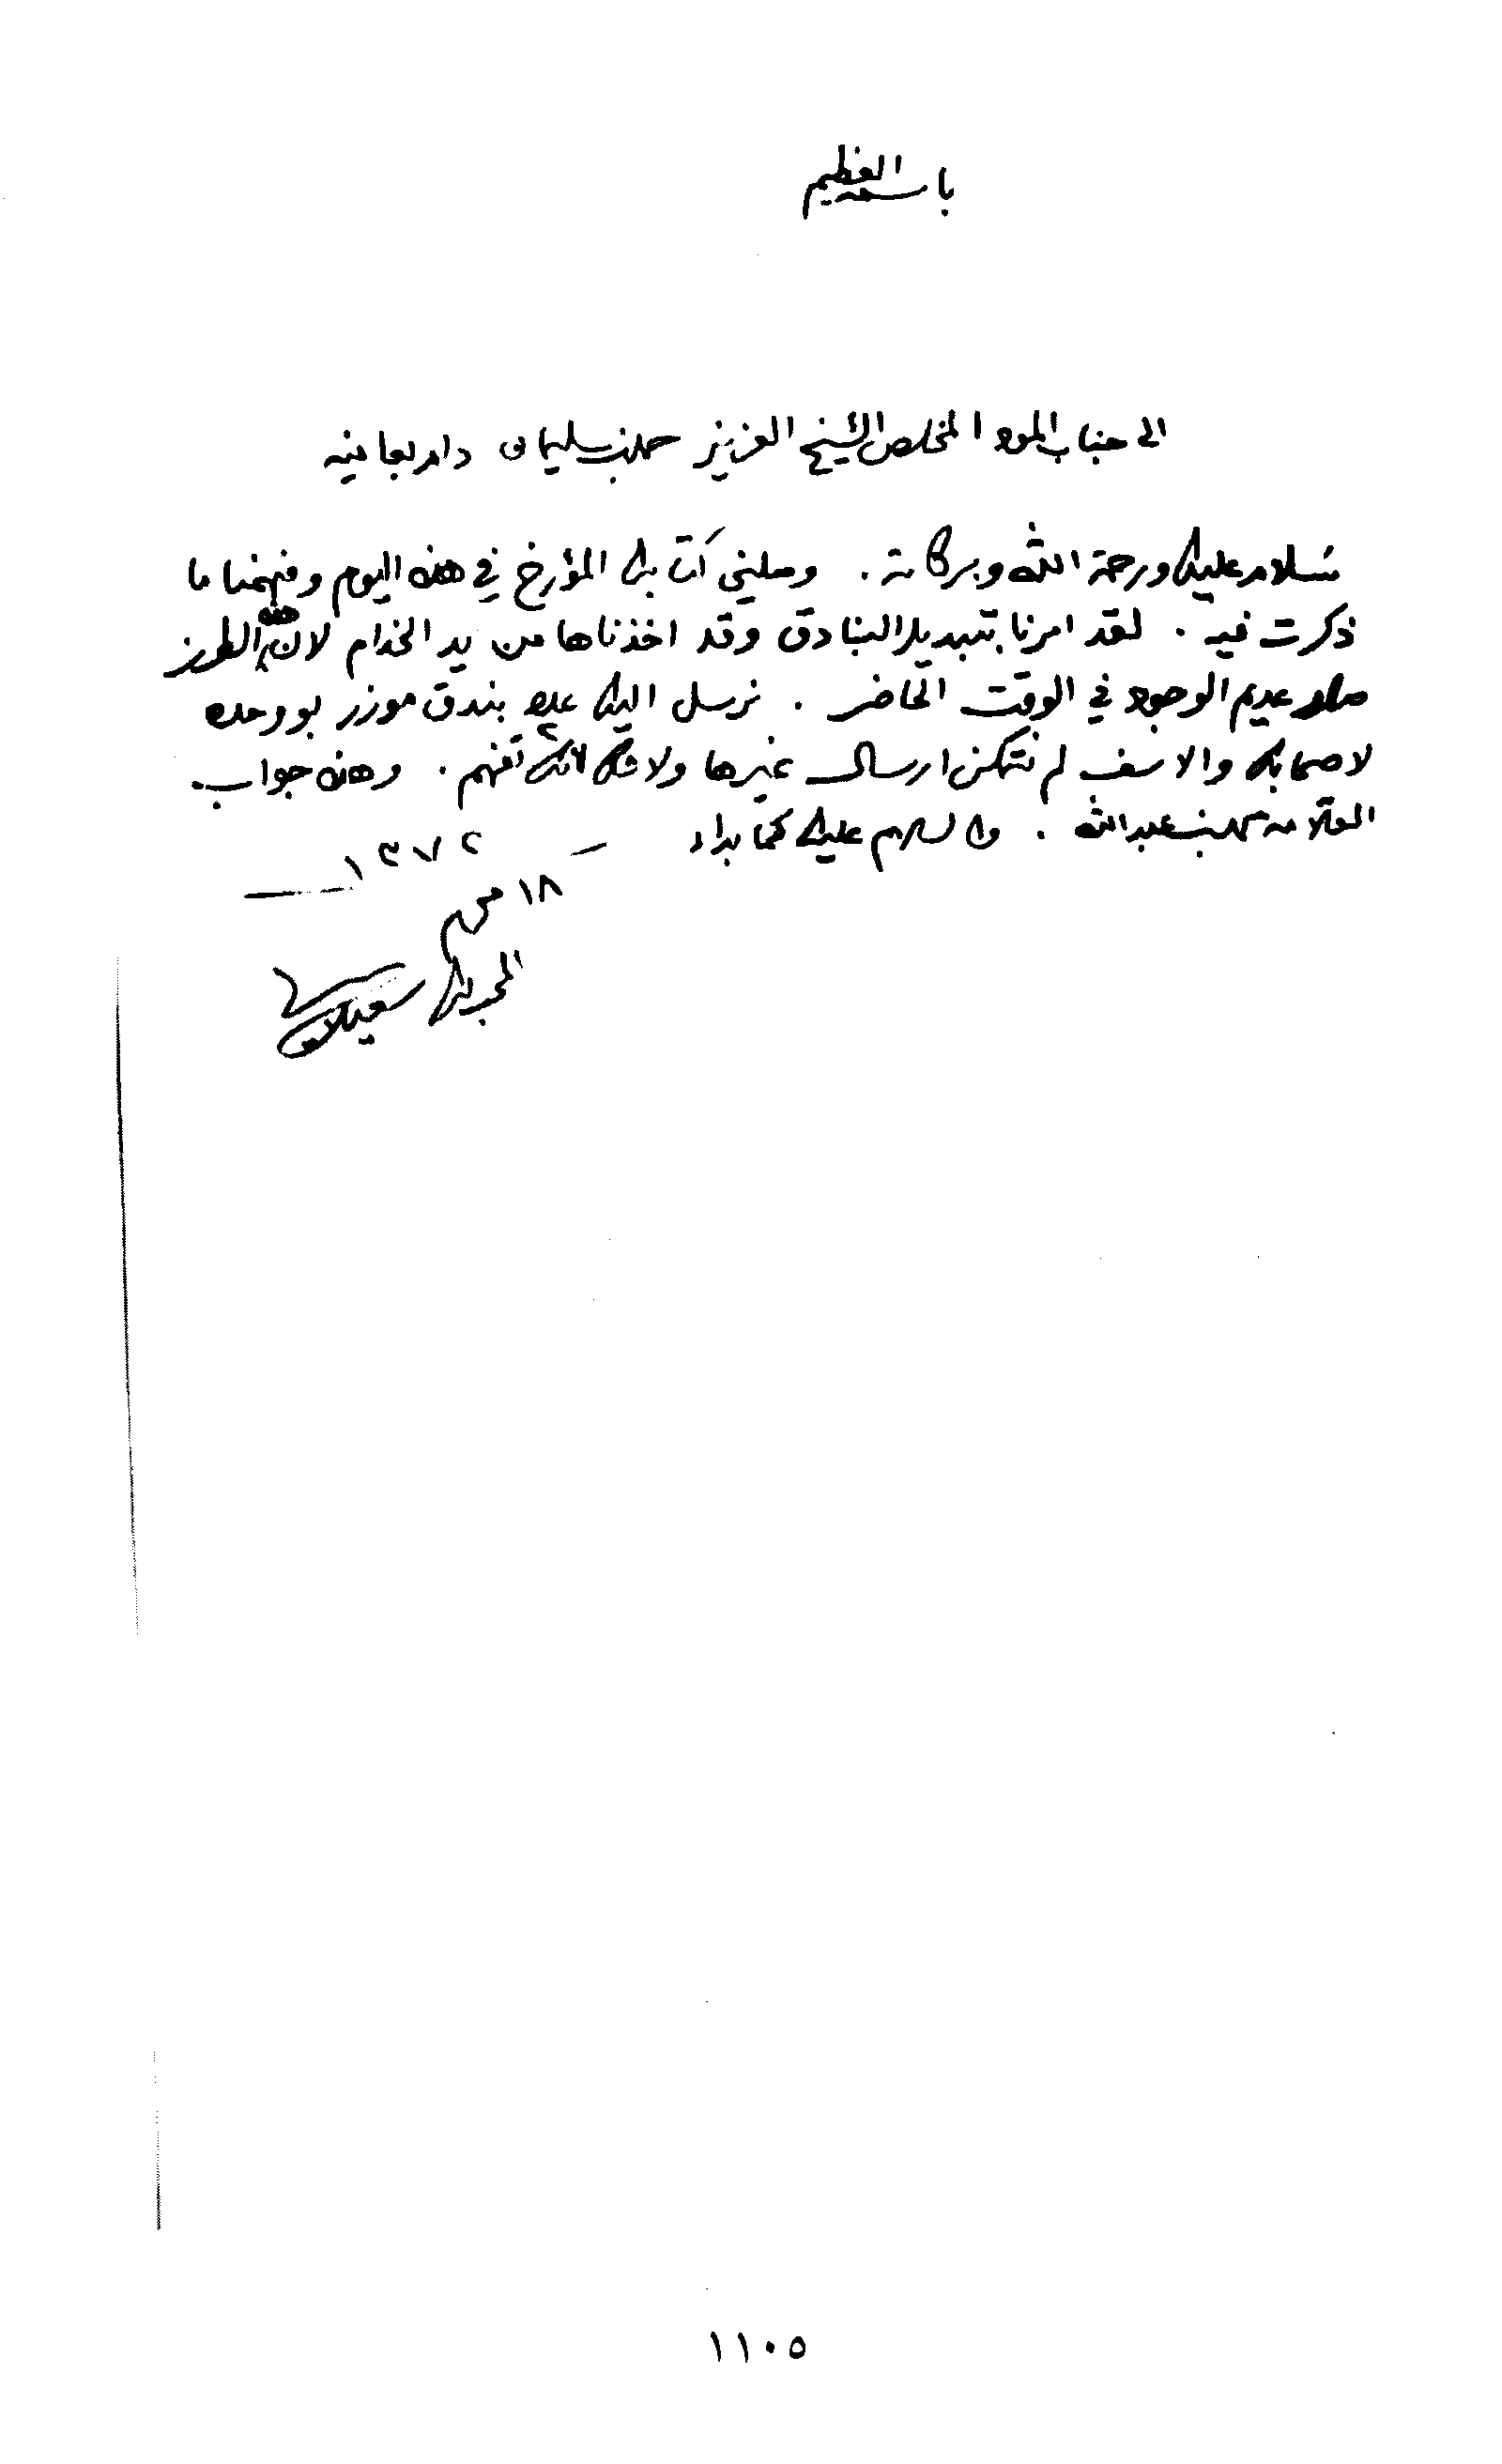 باسمه العظيم
الى جناب المود المخلص الشيخ العزيز حمد بن سليمان دام بعافيه
سلام عليك ورحمة الله وبركاته. وصلني كتابك المؤرخ في هذه اليوم وفهمنا ما
ذكرت فيه. لقد امرنا بتبديل البنادق وقد اخذناها من يد الخدام لان هذه الطرز
صار عديم الوجود في الوقت الحاضر. نرسل اليك عدد ٢ بندق موزر بو وحده
لاصحابك والاسف لم نتمكن ارسال غيرها ولا شك انك تفهم. وهذه جواب
العلامه محمد بن عبدالله. والسلام عليك كما بداء
١٣٧٢
١٨
المحب لك سعيد
١١٠٥